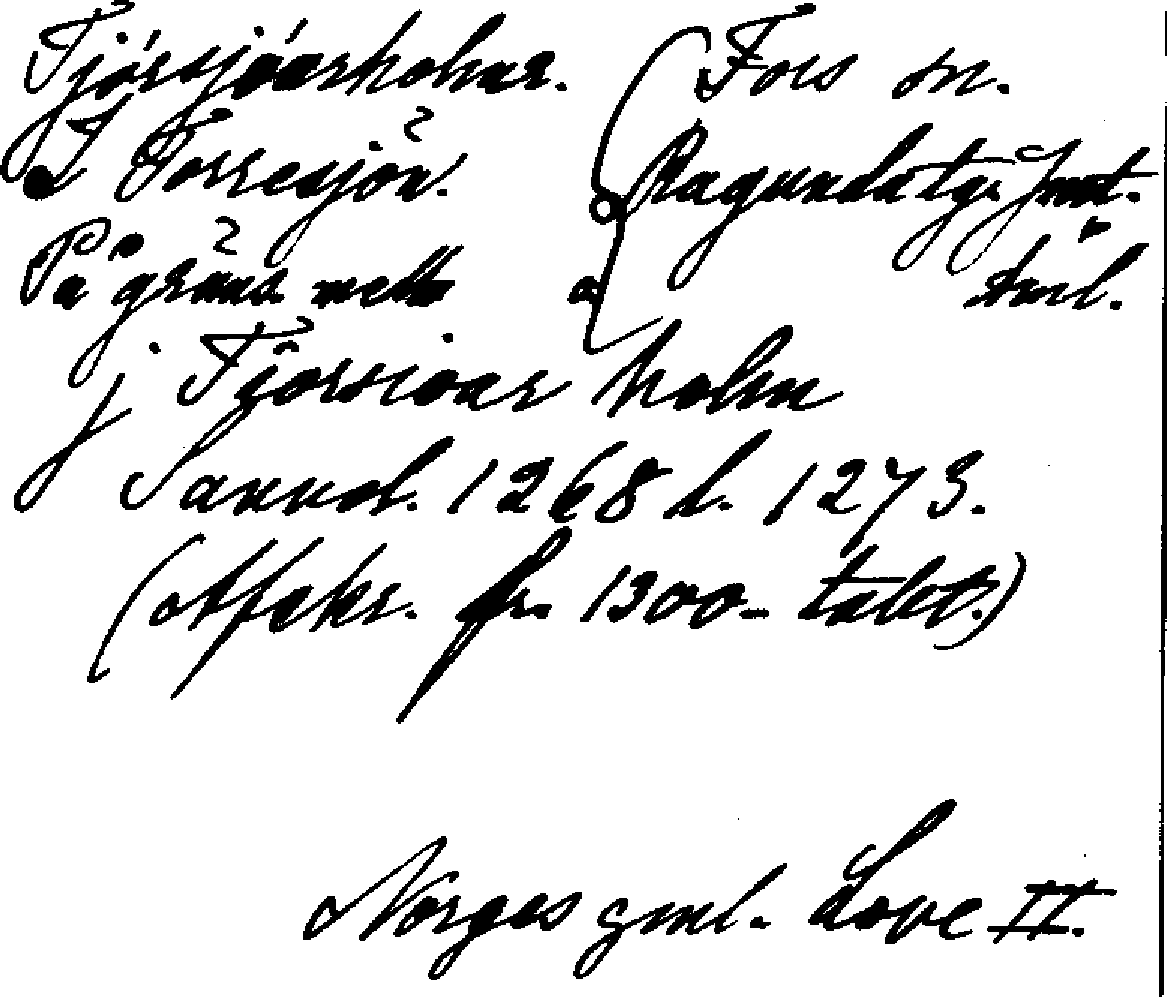 Tjórsjóarholmr. Fors sn.
I Torresjön. Ragunda tg. Jmt.
På gräns mell o
j Tiorsioar holm
Sannol. 1268 l. 1273.
(Afskr. fr. 1300-talet.)
Norges gml. Love II.